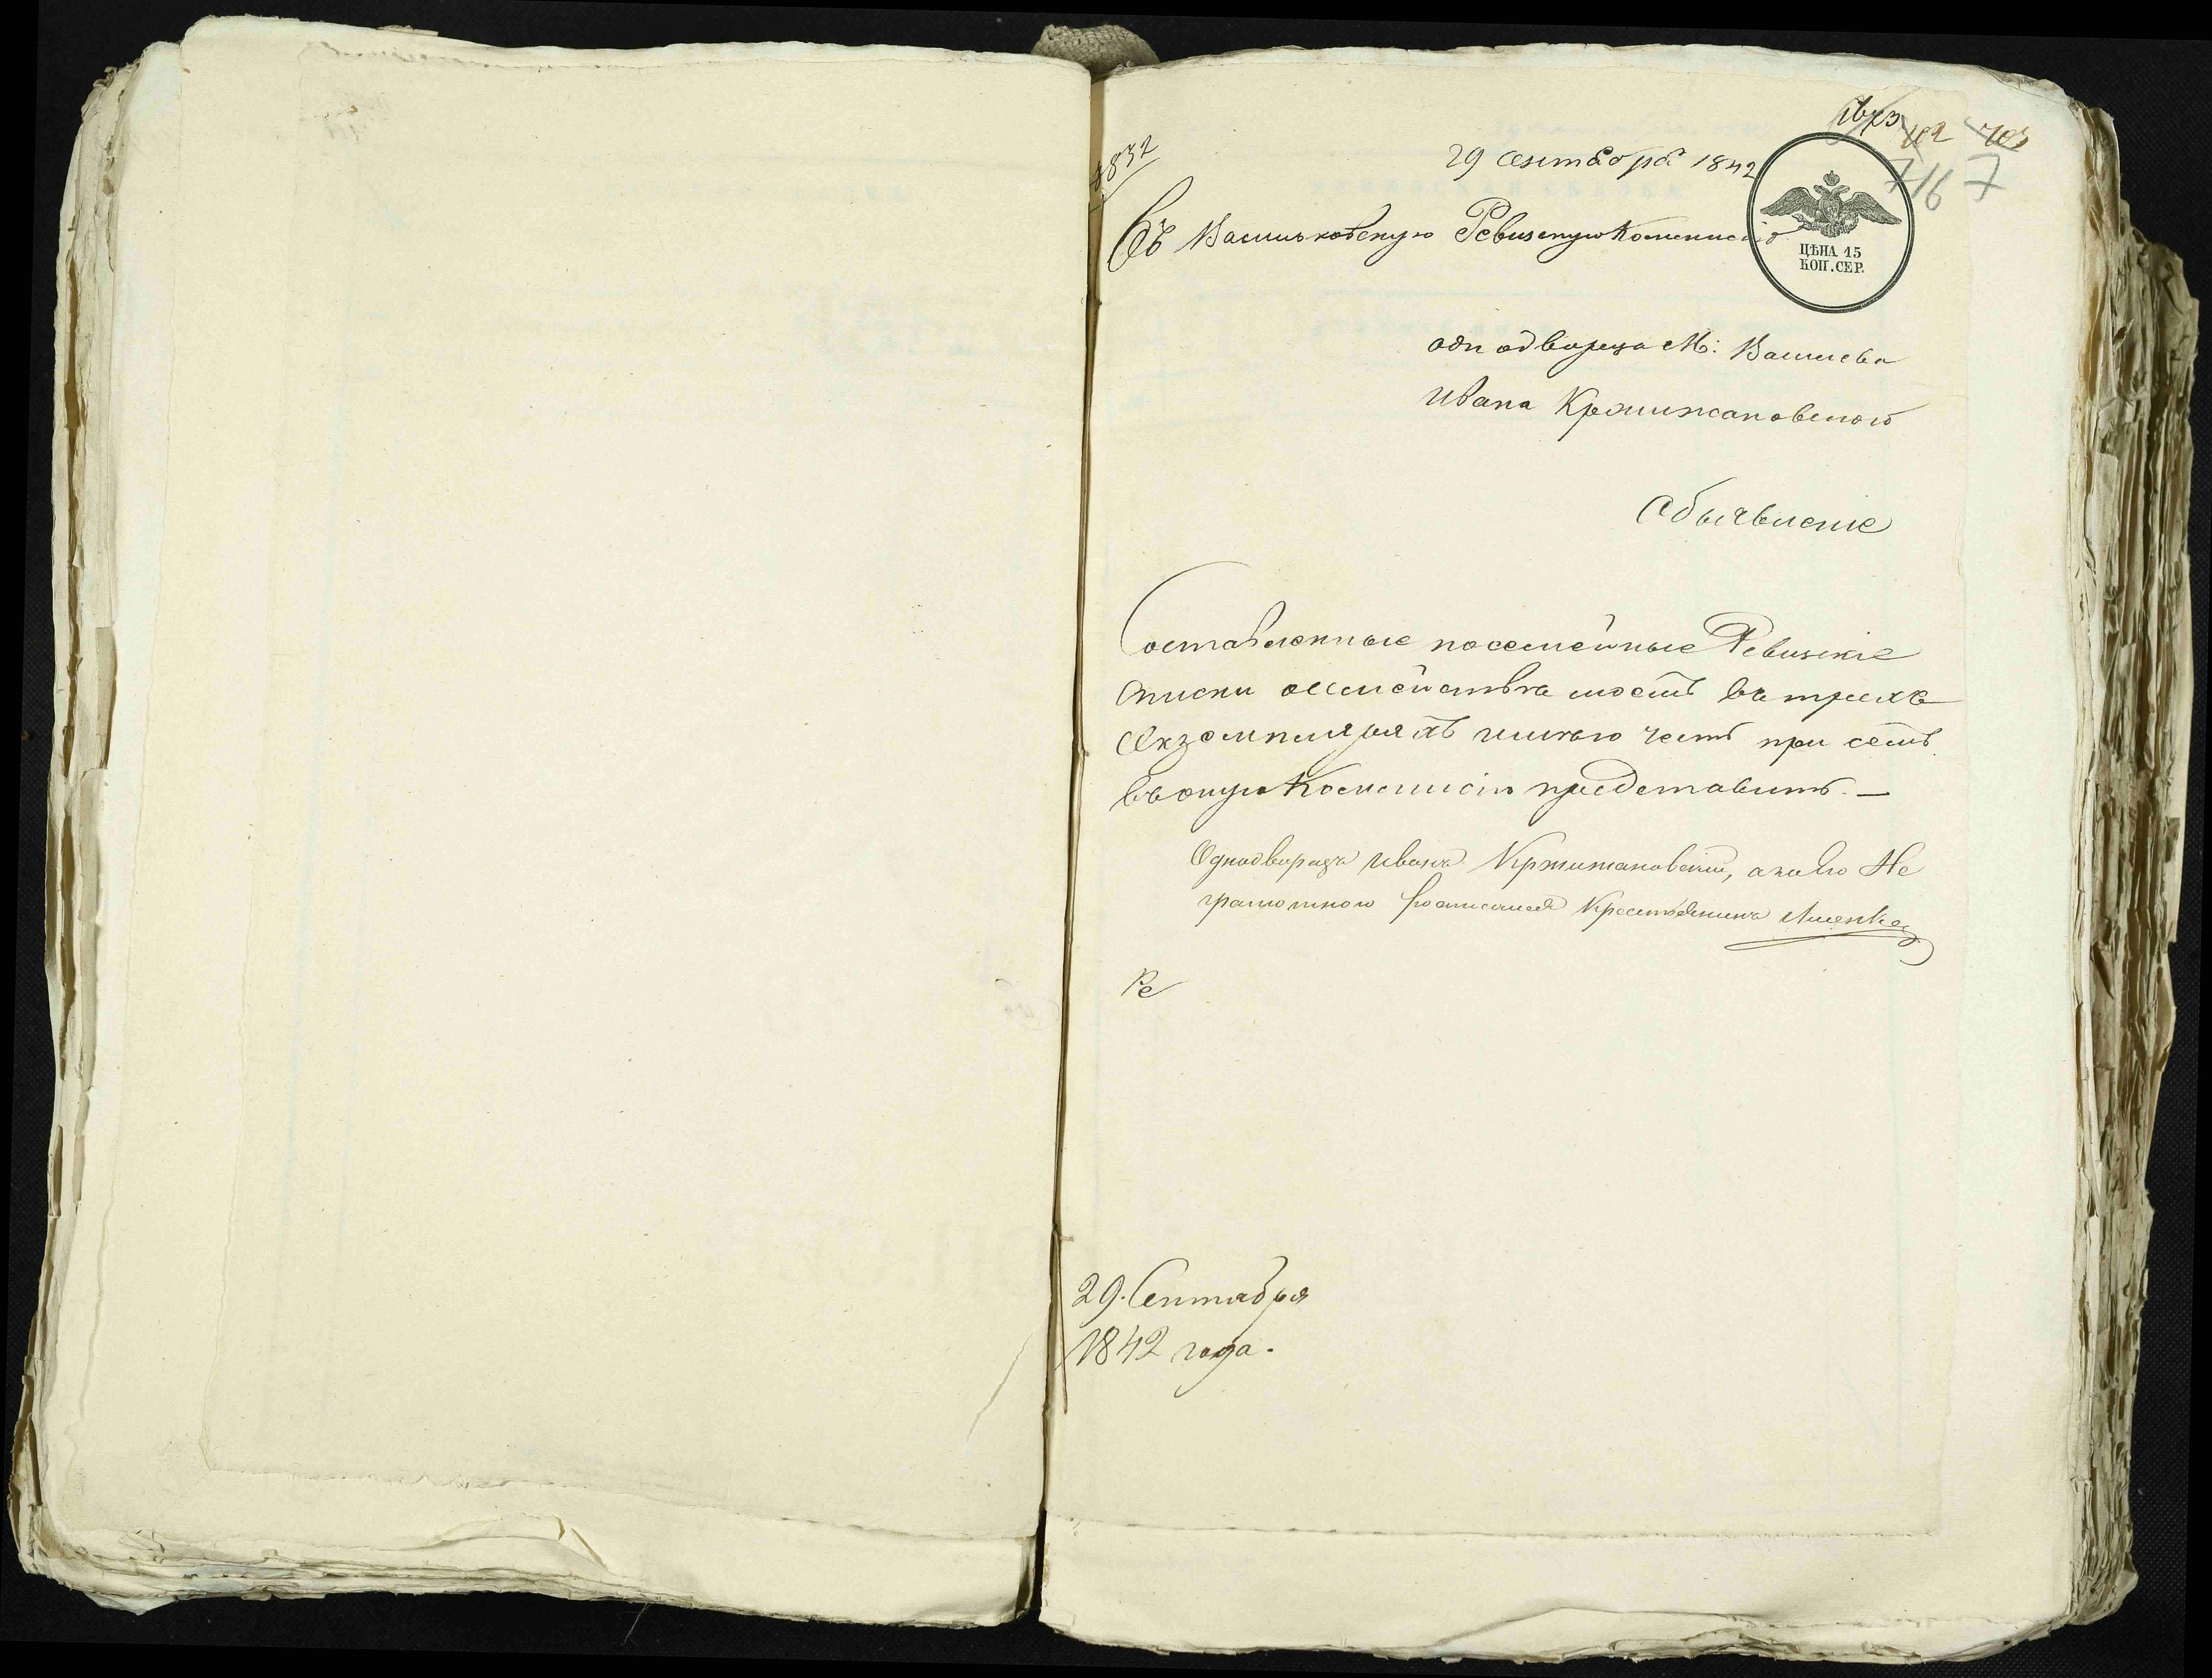 29 сентября 1842
Въ Васильковскую Ревизскую Коммисію
ЦѢНА 15
КОП. СЕР.
7167
однодворца М: Василева
Ивана Кржижановского
Объявленіе
Составленные посемейные Ревизкіе
Списки о семействѣ моемъ въ трехъ
Экземплярахъ имѣю честь при семъ
въ оную Коммисію представить. —
Однодворецъ Иванъ Кржижановскій, а за его не
грамотного росписался Крестьянинъ
Ре
29. Сентября
1842 года.